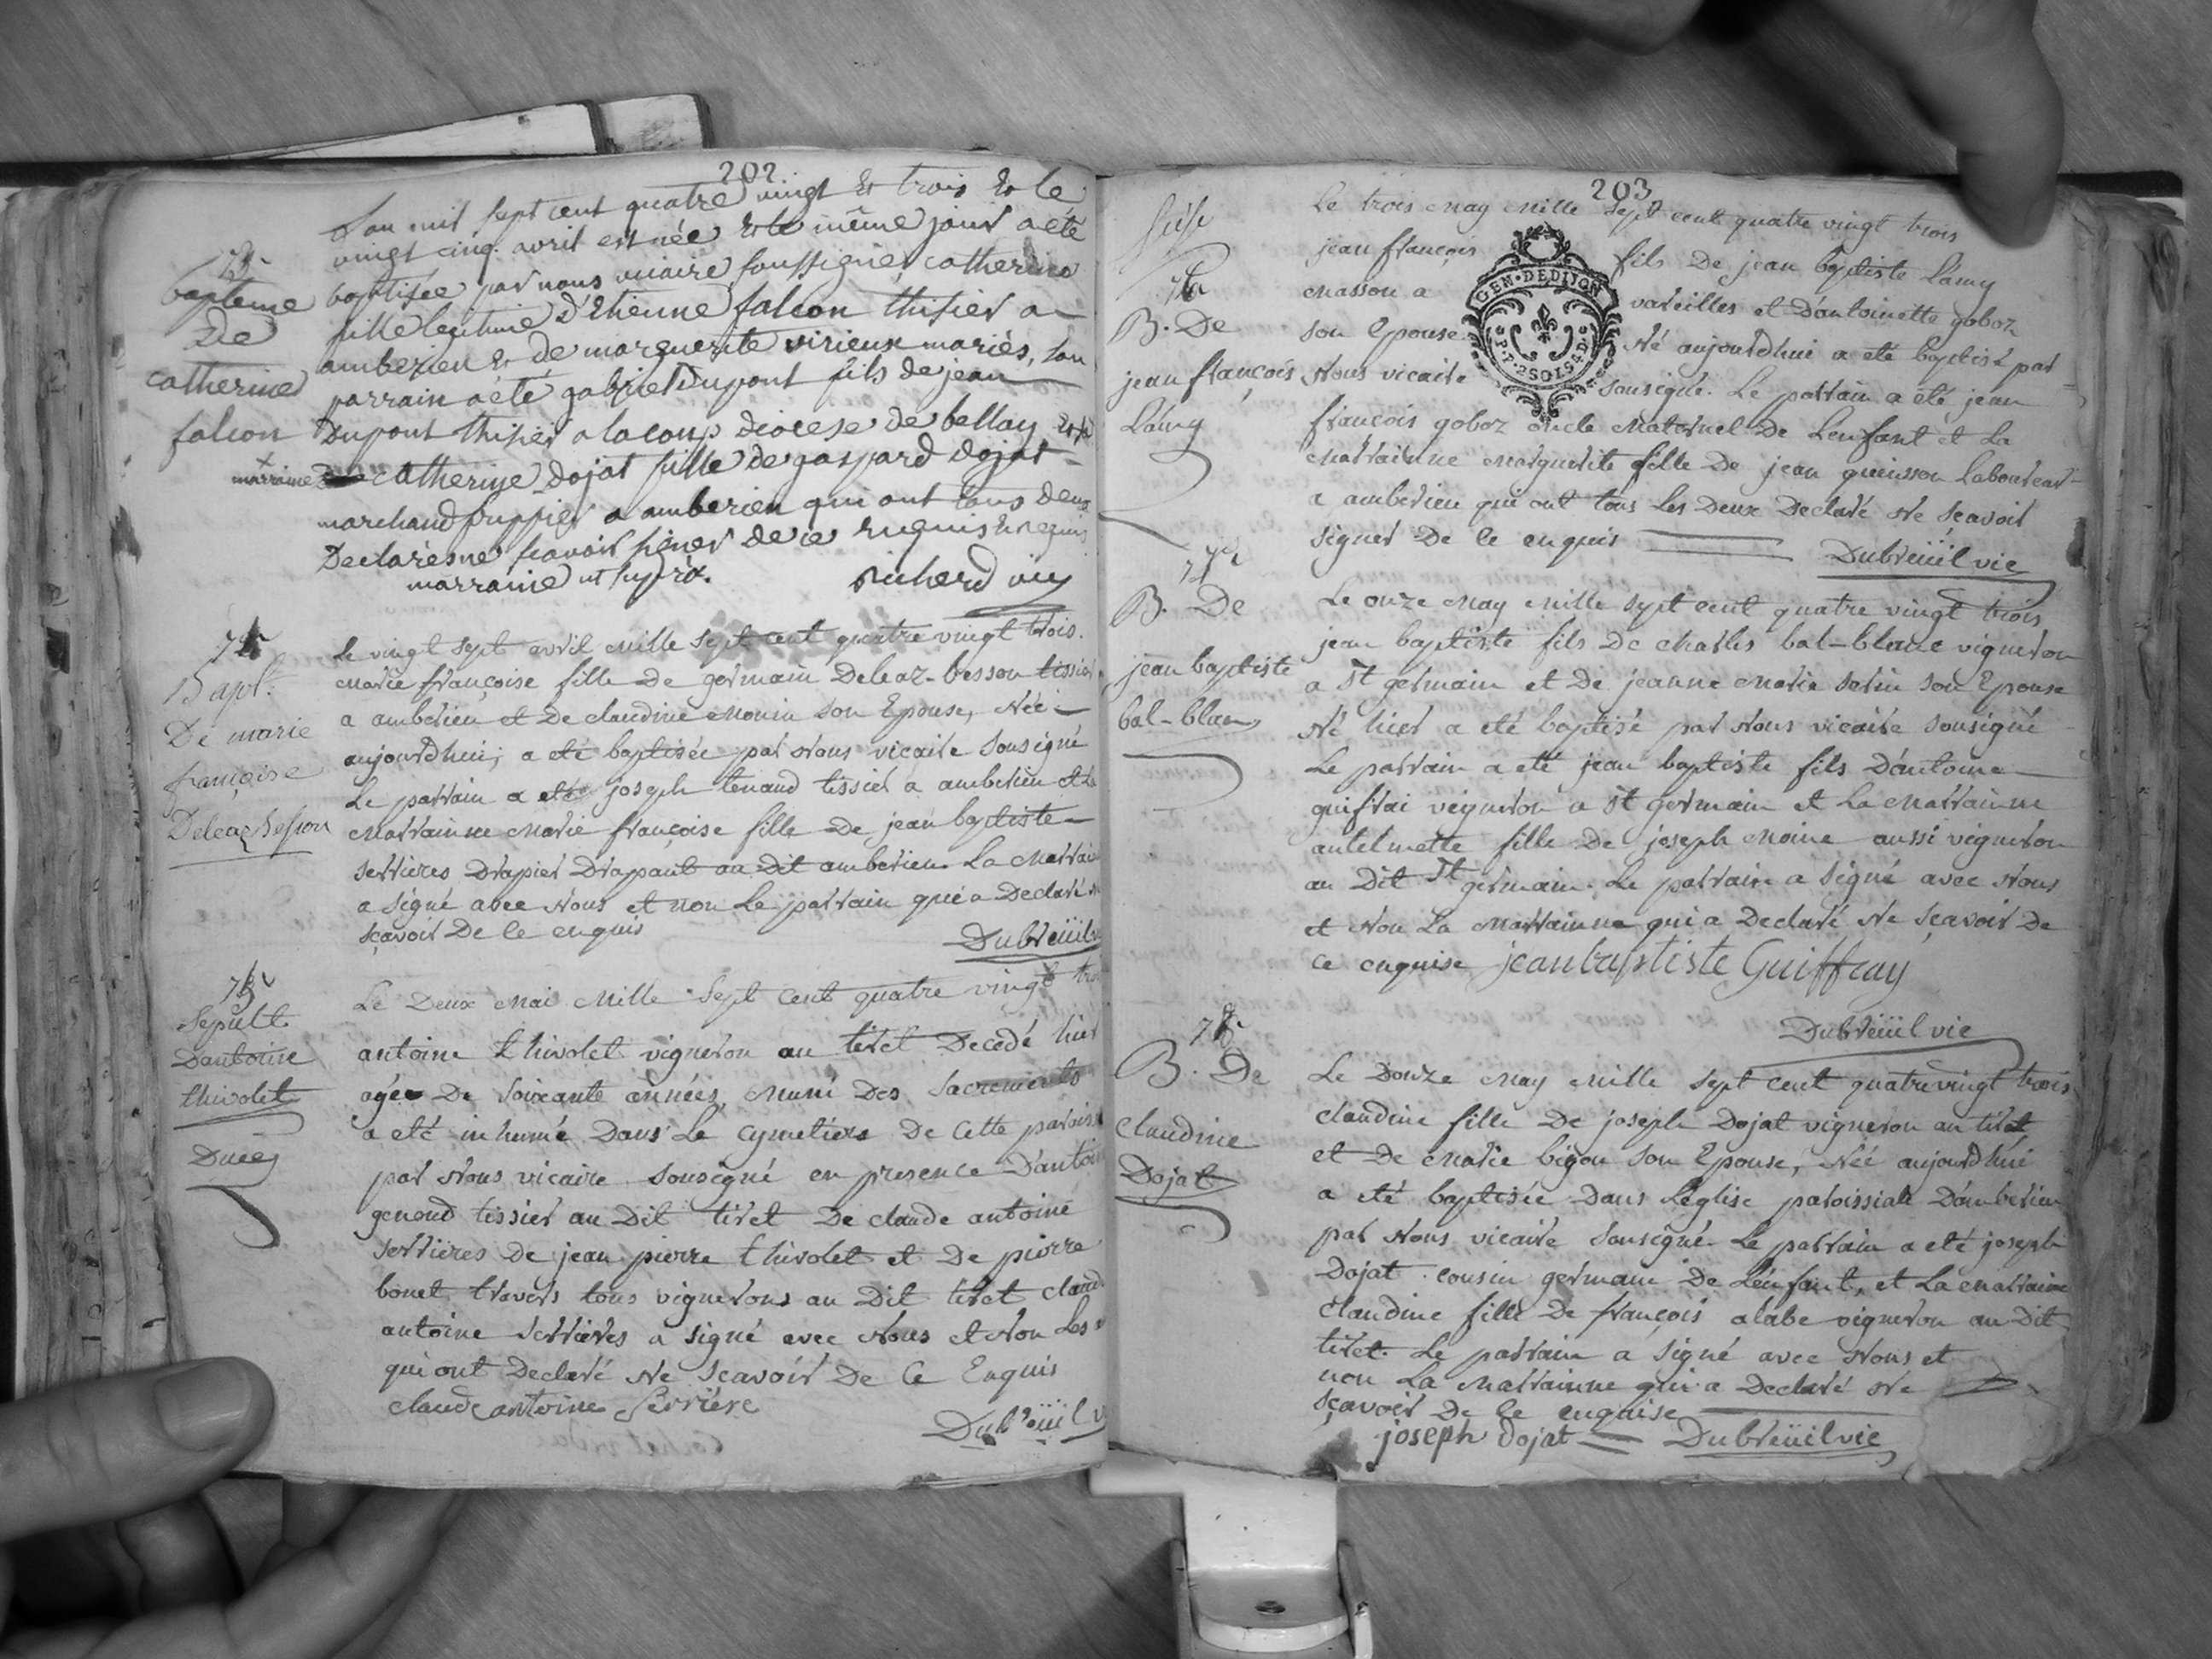 202
L'an mil sept cent quatre vingt et trois et le
vingt cinq avril est née et le même jour a été
baptisée par nous vicaire soussigné catherine
fille legitime d'Etienne falcon thisier a
amberieu et de marguerite virieux mariés, son
parrain a été gabriel dupont fils de jean
dupont thisier a la coup diocese de bellay et
catherine dojat fille de gaspard dojat
marchand fruppier a amberieu qui ont tous deux
Declarés ne scavoir signer de ce requis
marraine ut supra. richerd vic
baptême
de
catherine
falcon
+
marraine
Le vingt sept avril mille sept cent quatre vingt trois.
marie françoise fille De germain Deleaz-besson tissier
a amberieu et De claudine monin son Epouse, Née
aujourdhui; a eté baptisée par Nous vicaire sousigné
Le parrain a eté joseph tenand tissier a amberieu et la
marrainne marie françoise fille De jean baptiste
serrieres Drapier Drapant au Dit amberieu. La marrain
a signé avec Nous et non Le parrain qui a Declaré
sçavoir De ce enquis Dubreüil
74
Bapt.
De marie
françoise
Deleaz Besson
Le Deux mai mille sept cent quatre vingt
antoine thivolet vigneron au tiret Decedé hier
agé De soixante années, muni Des sacrements
a eté inhumé Dans Le cymetiere De cette parois
par Nous vicaire sousigné en presence D'antoi
genoud tissier au Dit tiret De claude antoine
serrieres De jean pierre thivolet et De pierre
bonet travers tous vignerons au Dit tiret claude
antoine serrieres a signé avec Nous et Non Les
qui ont Declaré Ne scavoir De ce Enquis
claude antoine Serriere
Dubreüil
Sepult.
Dantoine
thivolet
203
Le trois may mille sept cent quatre vingt trois
jean françois fils De jean baptiste Lamy
masson a vareilles et D'antoinette goboz
son Epouse Né aujourdhui a eté baptisé par
Nous vicaire sousigné. Le parrain a eté jean
françois goboz oncle maternel De L'enfant et La
marrainne marguerite fille De jean queinson Laboureur
a amberieu qui ont tous Les Deux Declaré Ne sçavoir
signer De ce enquis
Dubreüil vic
GEN. DE DIJON
B. De
jean françois
Lamy
Le onze may mille sept cent quatre vingt trois
jean baptiste fils De charles bal-blanc vigneron
a St germain et De jeanne marie serin son Epouse
Né hier a eté baptisé par Nous vicaire sousigné
Le parrain a eté jean baptiste fils D'antoine
guifrai vigneron a St germain et La marrainne
antelmette fille De joseph moine aussi vigneron
au Dit St germain. Le parrain a signé avec Nous
et Non La marrainne qui a Declaré Ne sçavoir De
ce enquise jean baptiste Guiffray
Dubreüil vic
B. De
jean baptiste
bal-blanc
Le Douze may mille sept cent quatre vingt trois
claudine fille De joseph Dojat vigneron au tiret
et De marie bigou son Epouse, Née aujourdhui
a eté baptisée Dans L'église paroissiale D'amberieu
par Nous vicaire sousigné. Le parrain a eté joseph
Dojat cousin germain De L'enfant, et La marraine
claudine fille De françois alabe vigneron au Dit
tiret. Le parrain a signé avec Nous et
non La marrainne qui a Declaré Ne
sçavoir De ce enquise
joseph dojat Dubreüil vic
B. De
claudine
Dojat